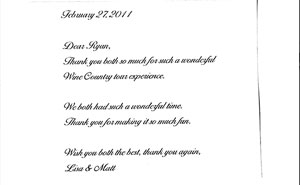 February 27, 2011
Dear Ryan,
Thank you both so much for such a wonderful
Wine Country tour experience.
We both had such a wonderful time.
Thank you for making it so much fun.
Wish you both the best, thank you again,
Lisa & Matt